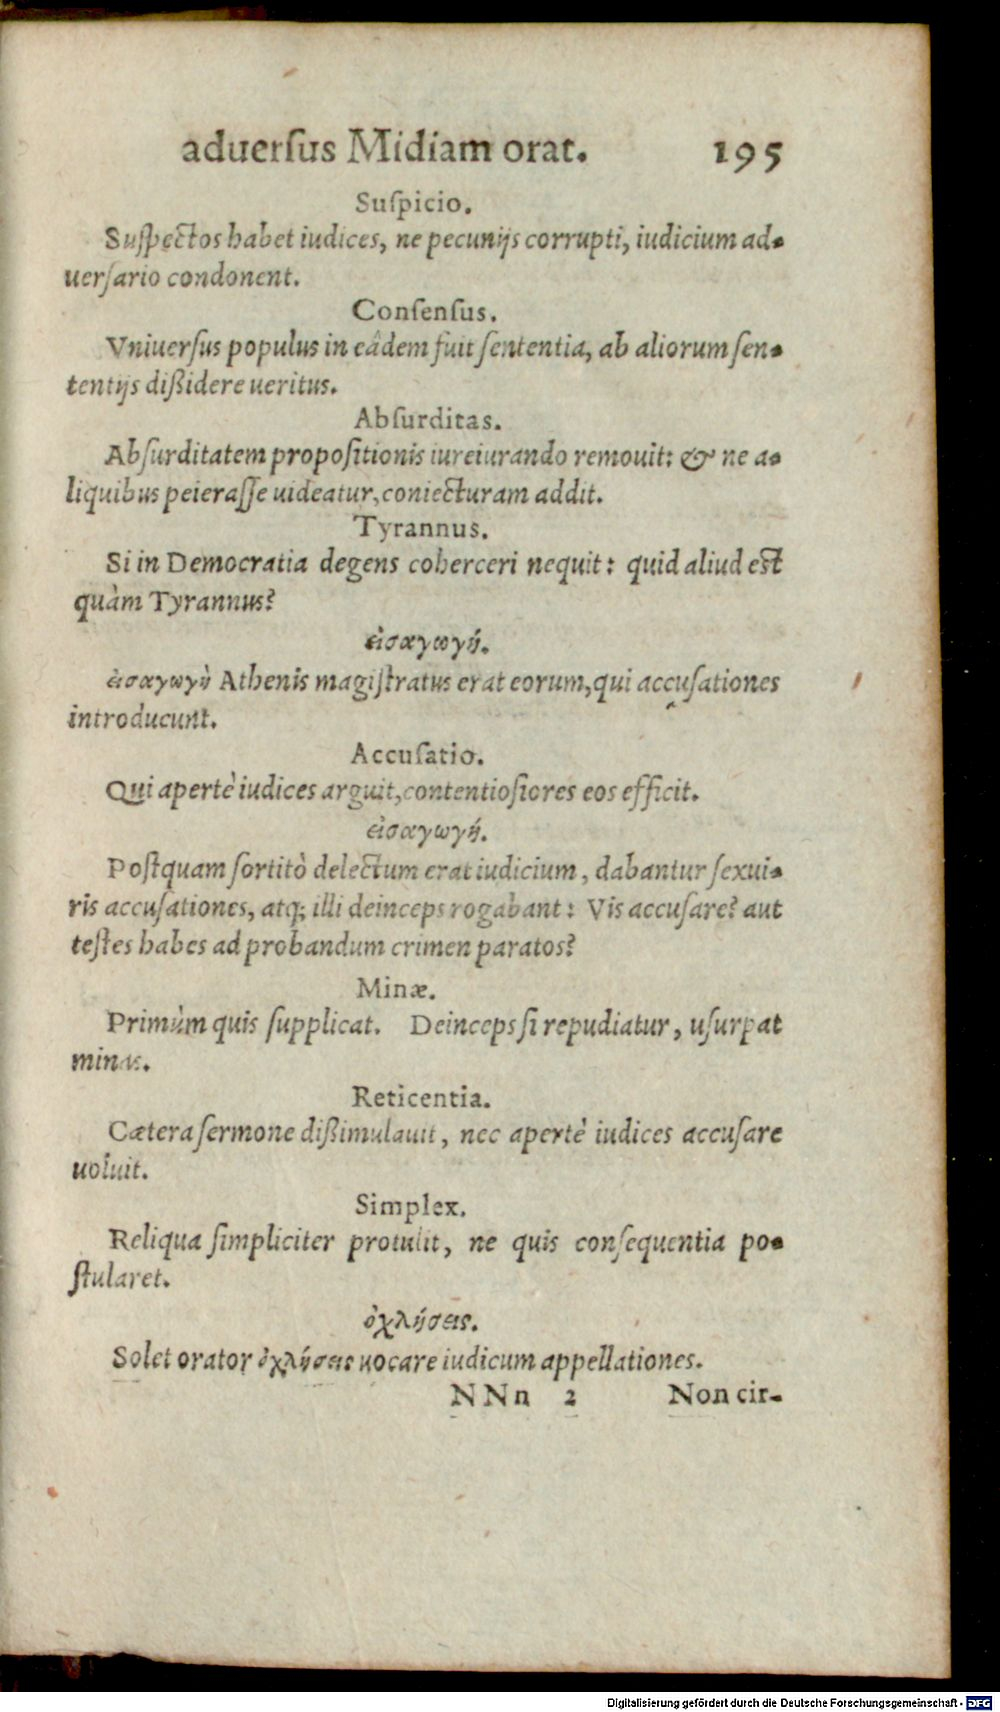 aduerſus Midiam orat. 195
Suſpicio.
Suſpectos habet iudices, ne pecunijs corrupti, iudicium ad-
uerſario condonent.
Conſenſus.
Vniuerſus populus in eâdem fuit ſententia, ab aliorum ſen-
tentijs dißidere ueritus.
Abſurditas.
Abſurditatem propoſitionis iureiurando remouit: & ne a-
liquibus peieraſſe uideatur, coniecturam addit.
Tyrannus.
Si in Democratia degens coherceri nequit: quid aliud est
quàm Tyrannus?
εἰσαγωγή.
εἰσαγωγὴ Athenis magiſtratus erat eorum, qui accuſationes
introducunt.
Accuſatio.
Qui apertè iudices arguit, contentioſiores eos efficit.
εἰσαγωγή.
Poſtquam ſortitò delectum erat iudicium, dabantur ſexui-
ris accuſationes, atq; illi deinceps rogabant: Vis accuſare? aut
teſtes habes ad probandum crimen paratos?
Minæ.
Primùm quis ſupplicat. Deinceps ſi repudiatur, uſurpat
minas.
Reticentia.
Cætera ſermone dißimulauit, nec apertè iudices accuſare
uoluit.
Simplex.
Reliqua ſimpliciter protulit, ne quis conſequentia po-
ſtularet.
ὀχλήσεις.
Solet orator ὀχλήσεις uocare iudicum appellationes.
NNn 2 Non cir-
Digitalisierung gefördert durch die Deutsche Forschungsgemeinschaft - DFG